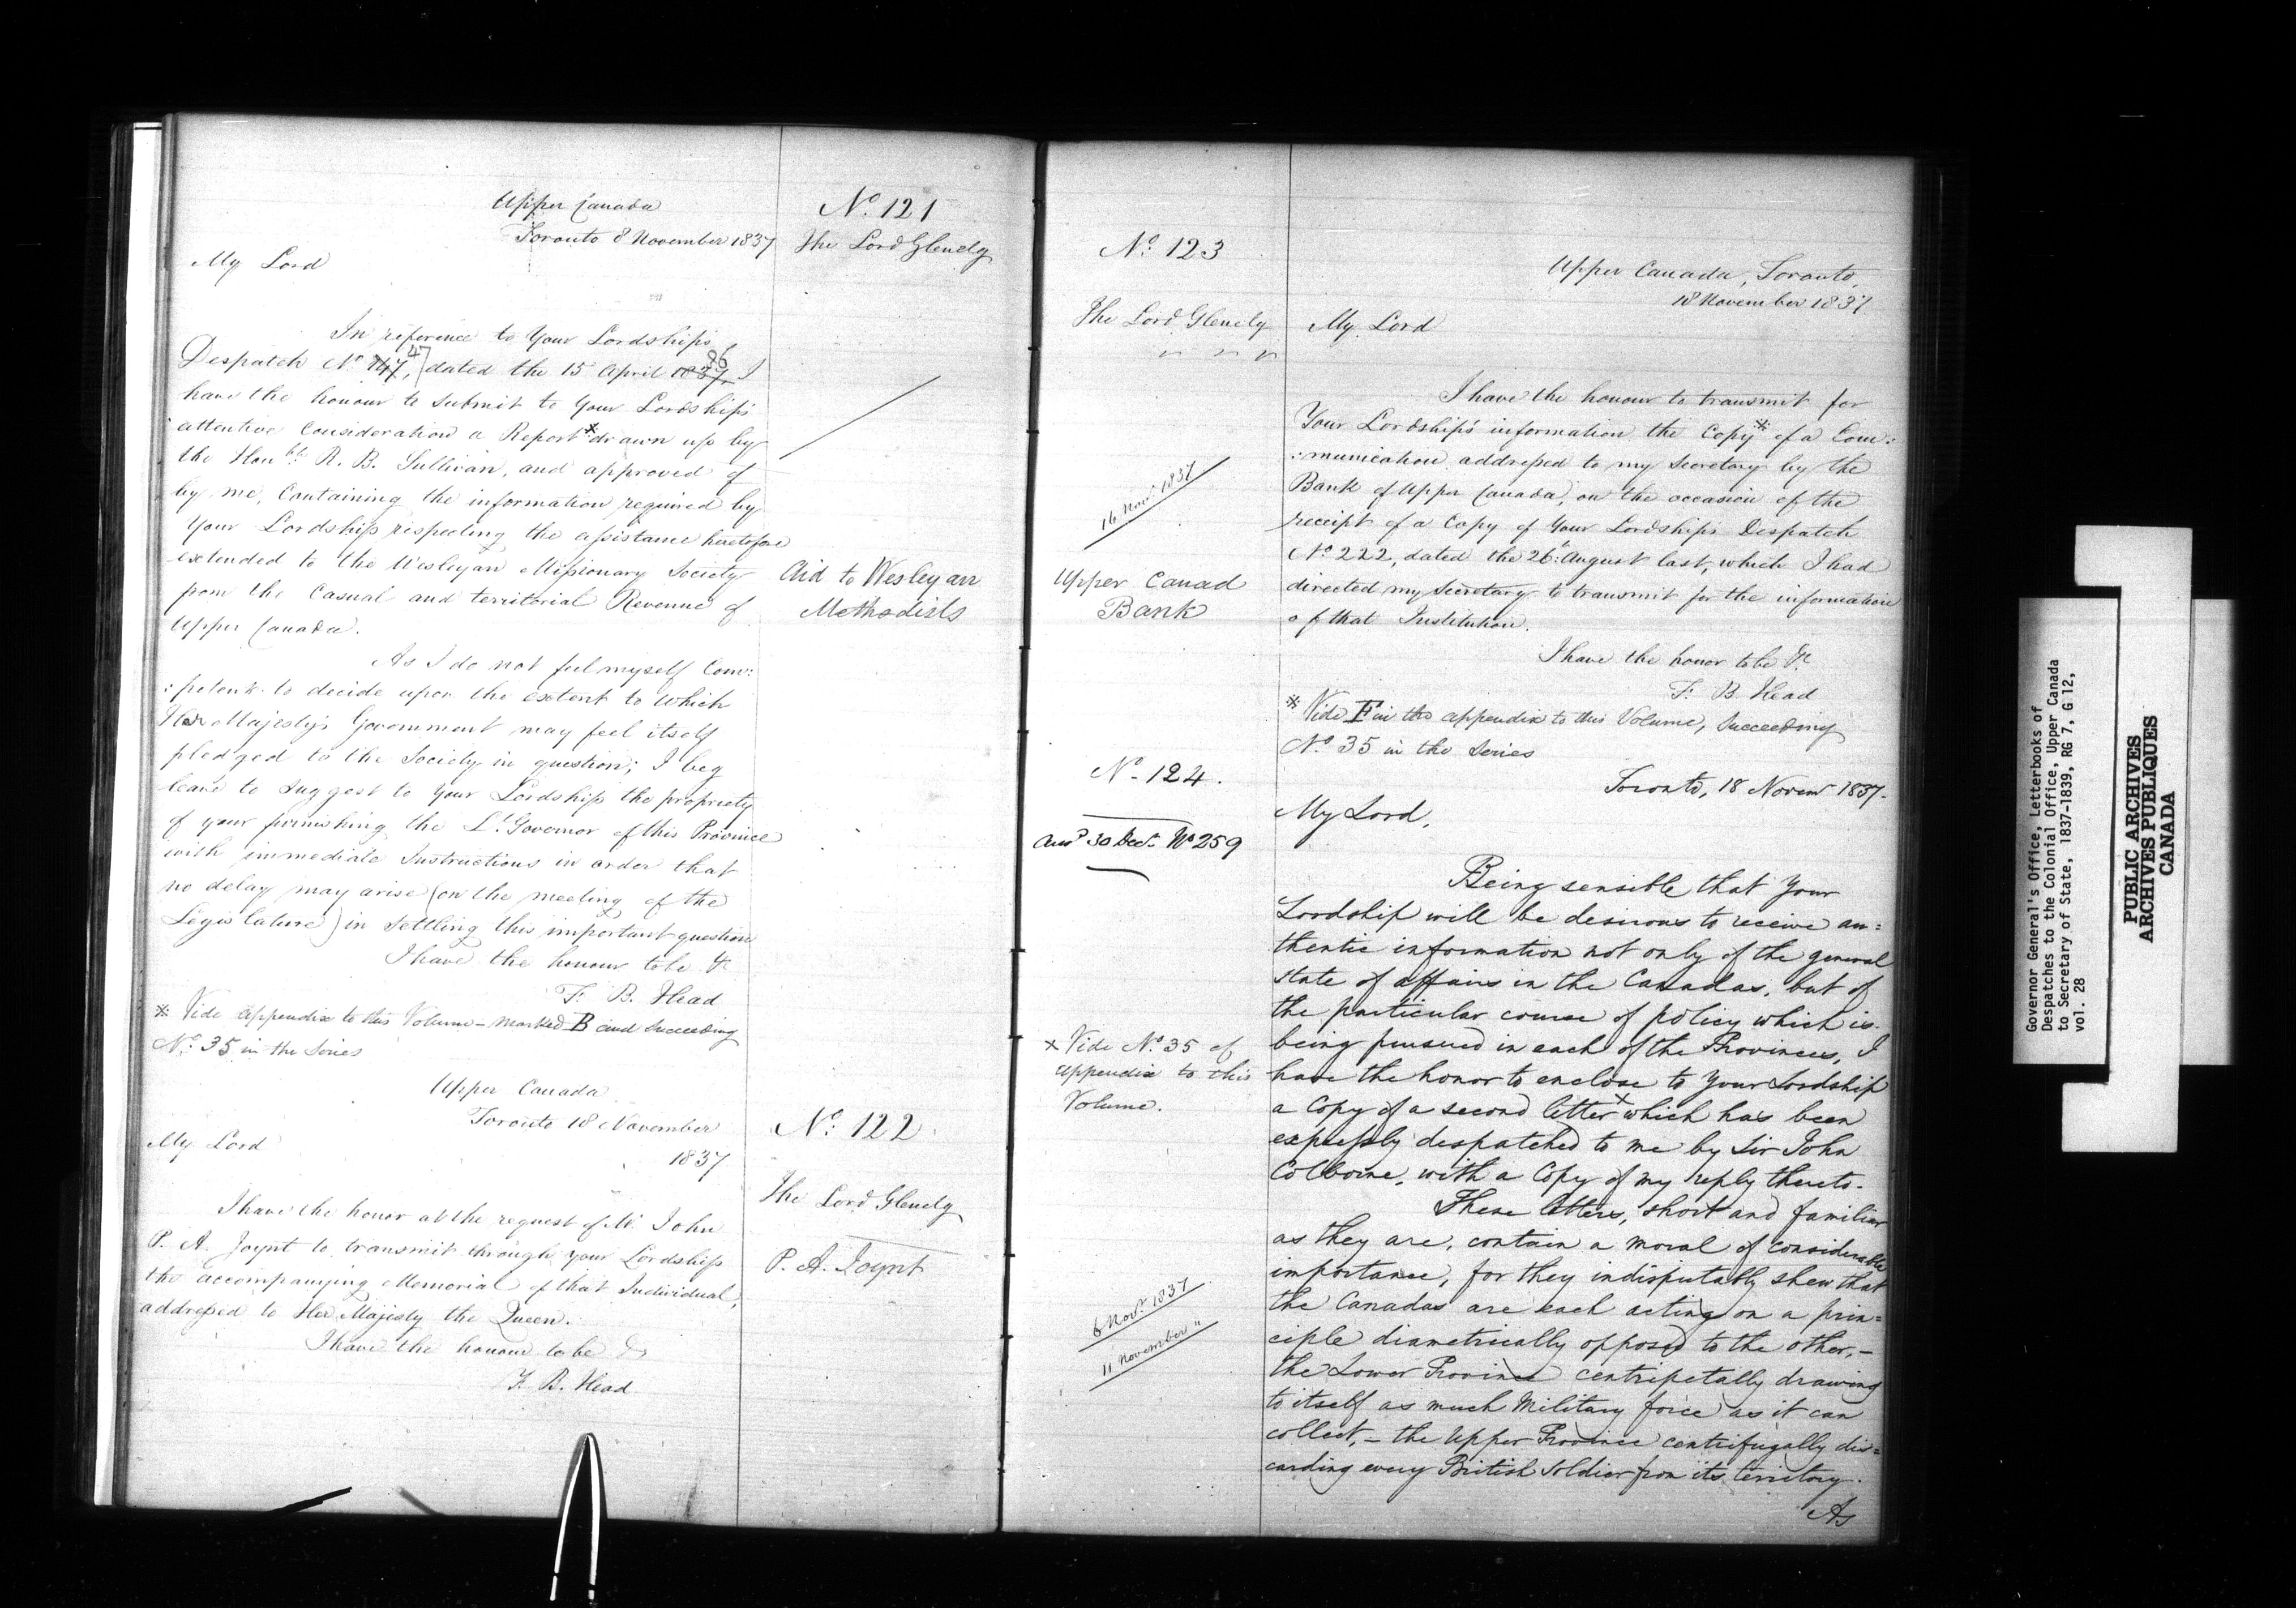 Upper Canada
Toronto 8 November 1837
No. 121
The Lord Glenelg
My Lord
In reference to Your Lordships
Despatch No 147, 47 dated the 15 April 1837, 36 I
have the honour to submit to Your Lordship's
attentive Consideration a Report * drawn up by
the Honble. R. B. Sullivan, and approved of
by me, Containing the information required by
Your Lordship respecting the assistance heretofore
extended to the Wesleyan Missionary Society
from the Casual and territorial Revenue of
Upper Canada.
Aid to Wesleyan
Methodists
As I do not feel myself Com:
:petent to decide upon the extent to which
Her Majesty's Government may feel itself
pledged to the Society in question; I beg
leave to suggest to Your Lordship the propriety
of your furnishing the Lt. Governor of this Province
with immediate Instructions in order that
no delay may arise (on the meeting of the
Legislature) in settling this important question
I have the honour to be &c
F. B. Head
* Vide appendix to this Volume - marked B and succeeding
No. 35 in the Series
Upper Canada
Toronto 18 November
1837
No. 122
The Lord Glenelg
P. A. Joynt
My Lord
I have the honor at the request of Mr. John
P. A. Joynt to transmit through your Lordship
the accompanying Memorial of that Individual,
addressed to Her Majesty the Queen.
I have the honour to be &c
F. B. Head
No. 123
The Lord Glenelg
Upper Canada, Toronto,
18 November 1837
My Lord
I have the honour to transmit for
Your Lordship's information the Copy * of a Com:
:munication addressed to my Secretary by the
Bank of Upper Canada, on the occasion of the
receipt of a Copy of Your Lordship's Despatch
No. 222, dated the 26th August last, which I had
directed my Secretary to transmit for the information
of that Institution.
16 Novr. 1837
Upper Canad
Bank
I have the honor to be &c
F. B. Head
* Vide F in the appendix to this Volume, succeeding
No. 35 in the Series
No. 124.
Ansd 30 Decr. No 259
Toronto, 18 Novemr 1837.
My Lord,
Being sensible that Your
Lordship will be desirous to receive au=
thentic information not only of the general
state of affairs in the Canadas, but of
the particular course of policy which is
being pursued in each of the Provinces, I
have the honor to enclose to Your Lordship
a Copy of a second letter x which has been
expressly despatched to me by Sir John
Colborne, with a Copy of my reply thereto.
x Vide No. 35 of
appendix to this
Volume.
These letters, short and familiar
as they are, contain a moral of considerable
importance, for they indisputably shew that
the Canadas are each acting on a prin=
ciple diametrically opposed to the other,—
the Lower Province centripetally drawing
to itself as much Military force as it can
collect,— the Upper Province centrifugally dis=
carding every British Soldier from its territory.
6 Novr. 1837
11 November "
As
Governor General's Office, Letterbooks of
Despatches to the Colonial Office, Upper Canada
to Secretary of State, 1837-1839, RG 7, G 12,
vol. 28
PUBLIC ARCHIVES
ARCHIVES PUBLIQUES
CANADA